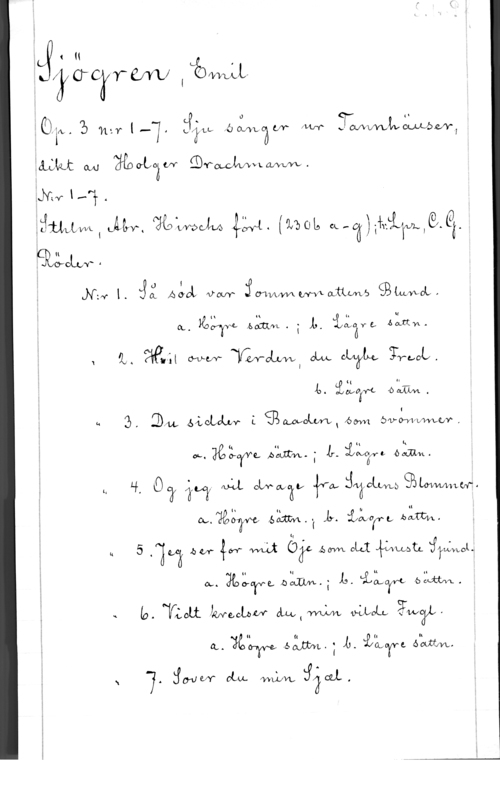 Sjögren, Emil
Op. 3 n:r 1-7. Sju sånger ur Tannhäuser,
dikt av Holger Drachmann.
N:r 1-7.
Sthlm, Abr. Hirschs förl. (2306 a-g); tr. Lpz, C.G.
Röder.
N:r 1. Så sød var Sommernattens Blund.
a. Högre sättn. ; b. Lägre sättn.
" 2. Hvil over Verden, du dybe Fred.
b. Lägre sättn.
" 3. Du sidder i Baaden, som svømmer.
a. Högre sättn. ; b. Lägre sättn.
" 4. Og jeg vil drage fra Sydens Blommer.
a. Högre sättn. ; b. Lägre sättn.
" 5. Jeg ser for mit Öje som det fineste Spind.
a. Högre sättn. ; b. Lägre sättn.
" 6. Vidt kredser du, min vilde Fugl.
a. Högre sättn. ; b. Lägre sättn.
" 7. Sover du min Sjæl.